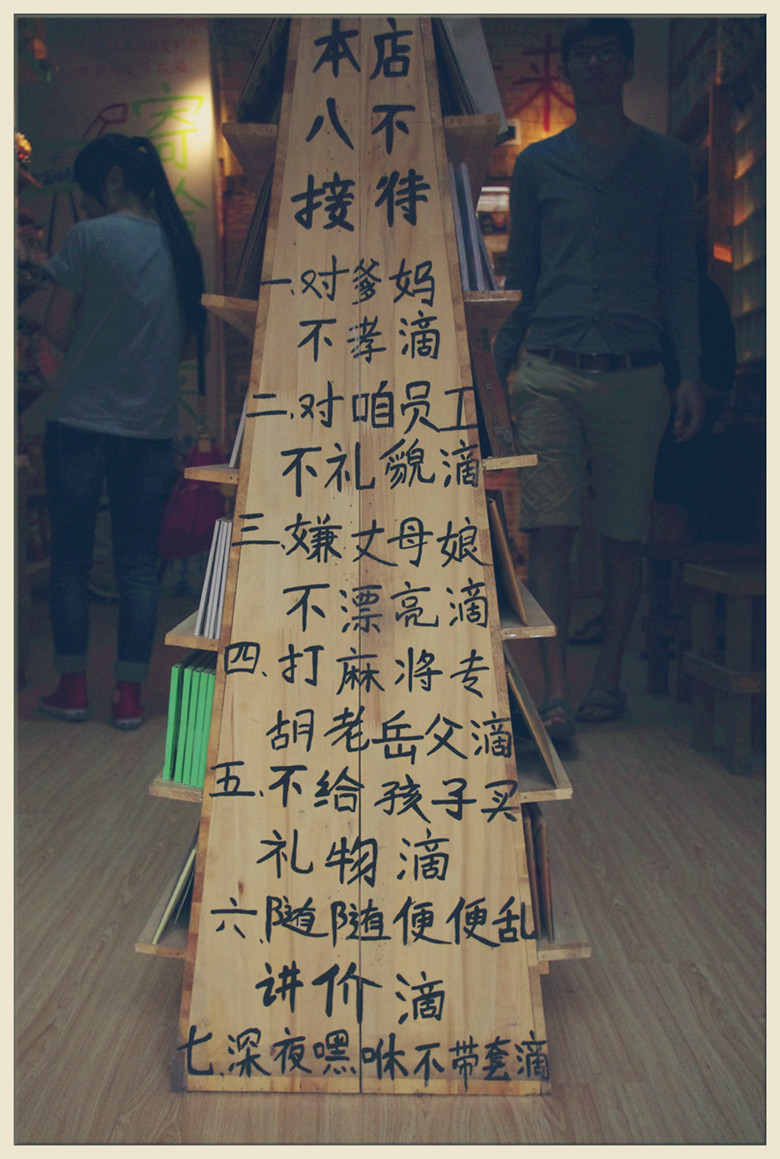 本店
八不
接待
一、对爹妈
不孝滴
二、对咱员工
不礼貌滴
三、嫌丈母娘
不漂亮滴
四、打麻将专
胡老岳父滴
五、不给孩子买
礼物滴
六、随随便便乱
讲价滴
七、深夜嘿咻不带套滴
寄
来